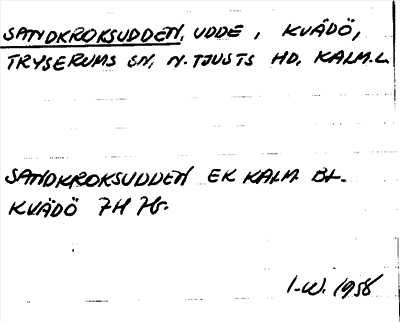 SANDKROKSUDDEN, UDDE, KVÄDÖ,
TRYSERUMS SN, N. TJUSTS HD, KALM.L.
SANDKROKSUDDEN EK KALM. BL.
KVÄDÖ 7H 7G.
I-W. 1958